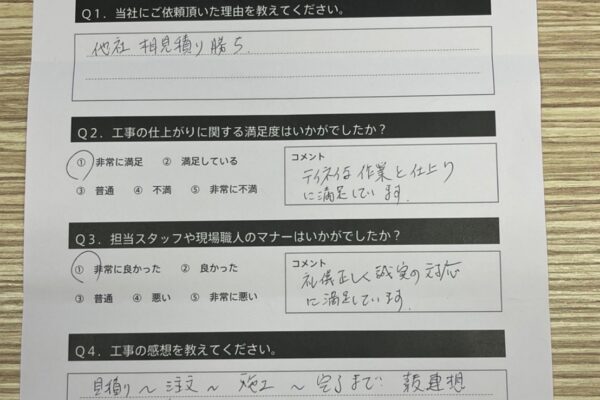 Q1．当社にご依頼頂いた理由を教えてください。
他社 相見積り勝ち
Q2．工事の仕上がりに関する満足度はいかがでしたか？
① 非常に満足 ② 満足している
③ 普通 ④ 不満 ⑤ 非常に不満
コメント
テイネイな作業と仕上り
に満足しています.
Q3．担当スタッフや現場職人のマナーはいかがでしたか？
① 非常に良かった ② 良かった
③ 普通 ④ 悪い ⑤ 非常に悪い
コメント
礼儀正しく誠実の対応
に満足しています.
Q4．工事の感想を教えてください。
見積り～注文～施工～完了まで